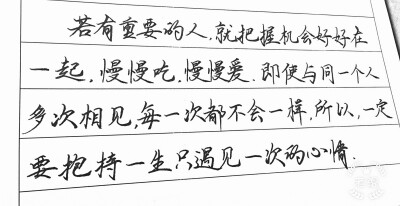 若有重要的人,就把握机会好好在
一起,慢慢吃,慢慢爱.即使与同一个人
多次相见,每一次都不会一样,所以,一定
要抱持一生只遇见一次的心情.